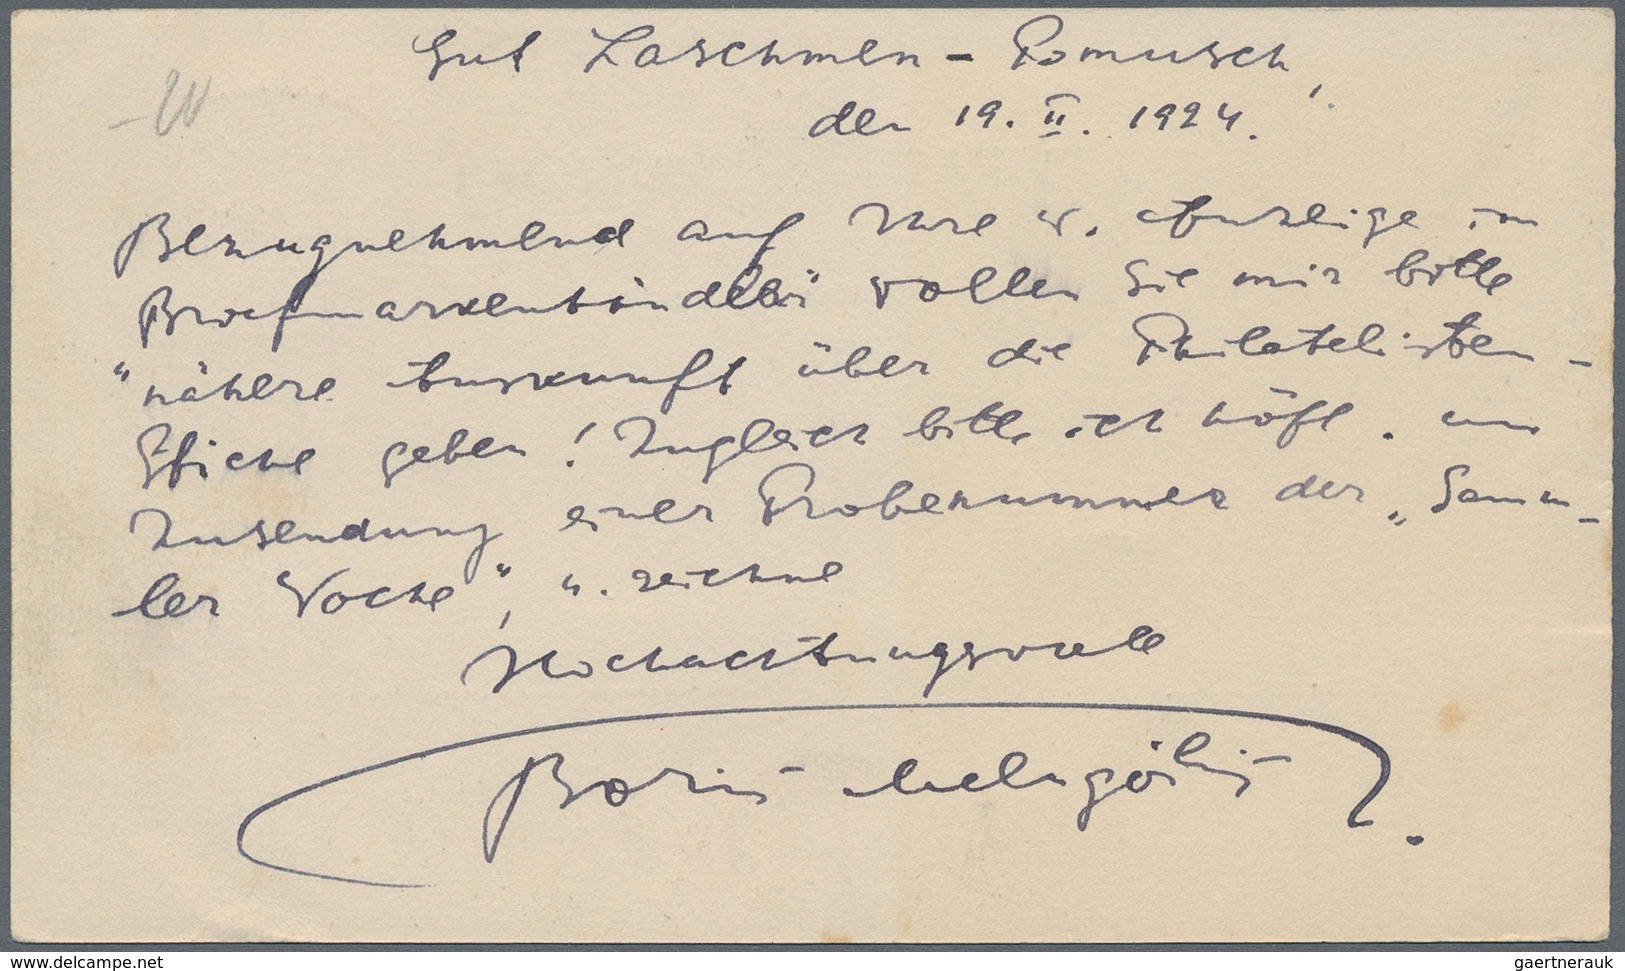 Gut Laschmen - Pomusch,
den 19. II. 1924.
Bezugnehmend auf Ihre w. Anzeige im
Briefmarkenhändler" wollen Sie mir bitte
"nähere Auskunft über die Philatelisten-
geben! Zugleich bitte ich höfl. um
Zusendung einer Probenummer der „Samm-
ler Woche", u. zeichne
Hochachtungsvoll
Boris
www.delcampe.net
gaertnerauk